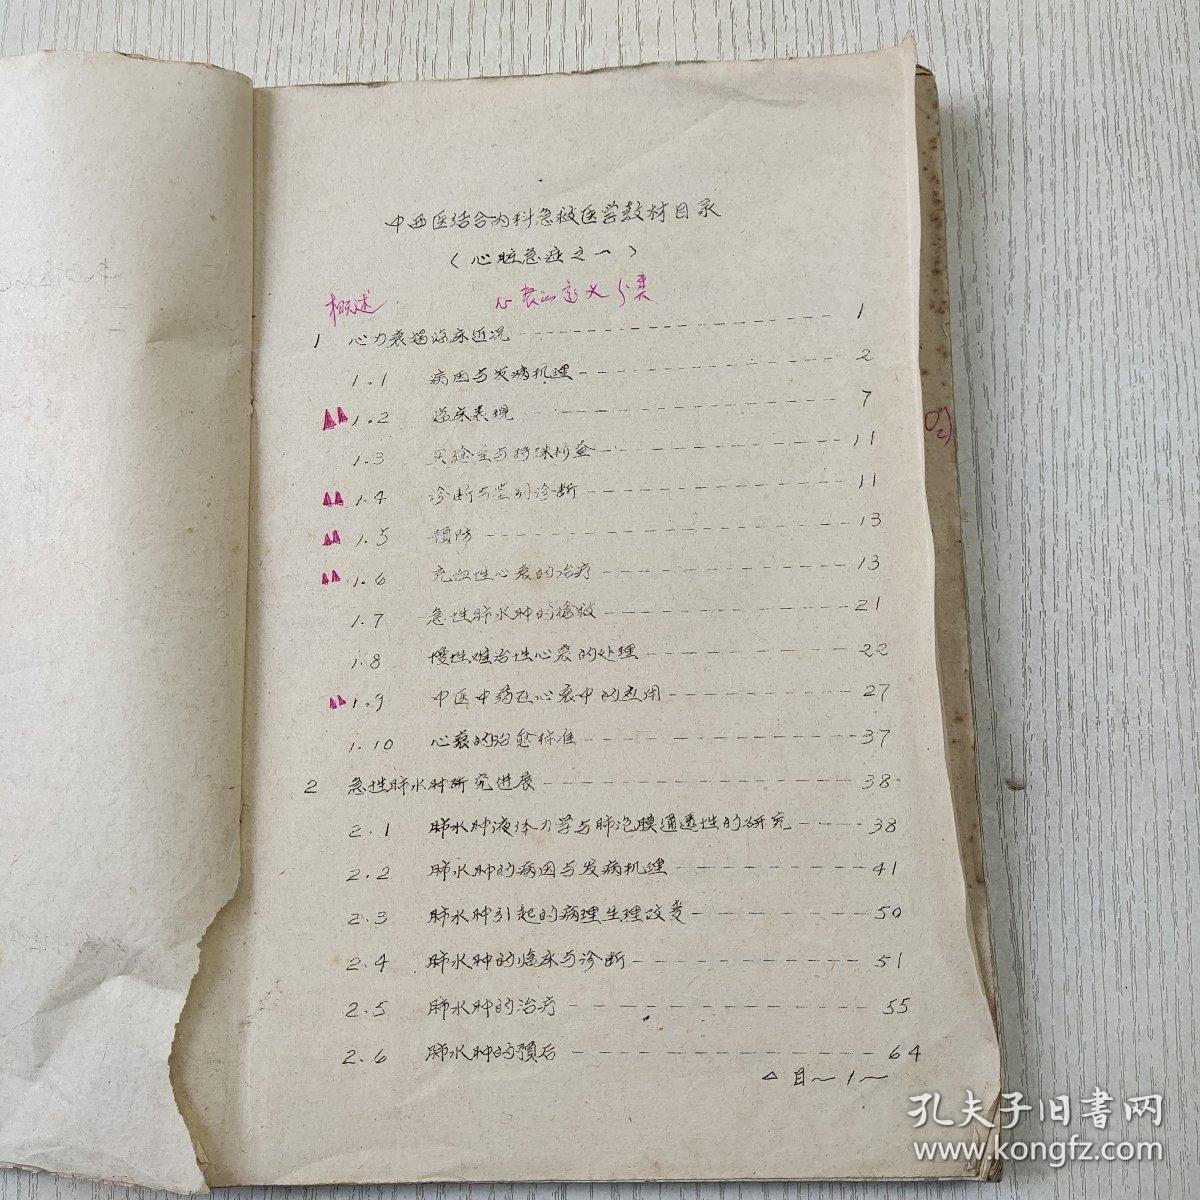 中西医结合内科急救医学教材目录
（心脏急症之一）
概述 心衰的定义分类
1 心力衰竭临床近况 1
1.1 病因与发病机理 2
1.2 临床表现 7
1.3 实验室与特殊检查 11
1.4 诊断与鉴别诊断 11
1.5 预防 13
1.6 充血性心衰的治疗 13
1.7 急性肺水肿的抢救 21
1.8 慢性难治性心衰的处理 22
1.9 中医中药在心衰中的应用 27
1.10 心衰的治愈标准 37
2 急性肺水肿研究进展 38
2.1 肺水肿液体力学与肺泡膜通透性的研究 38
2.2 肺水肿的病因与发病机理 41
2.3 肺水肿引起的病理生理改变 50
2.4 肺水肿的临床与诊断 51
2.5 肺水肿的治疗 55
2.6 肺水肿的预后 64
△目～1～
孔夫子旧書网
www.kongfz.com